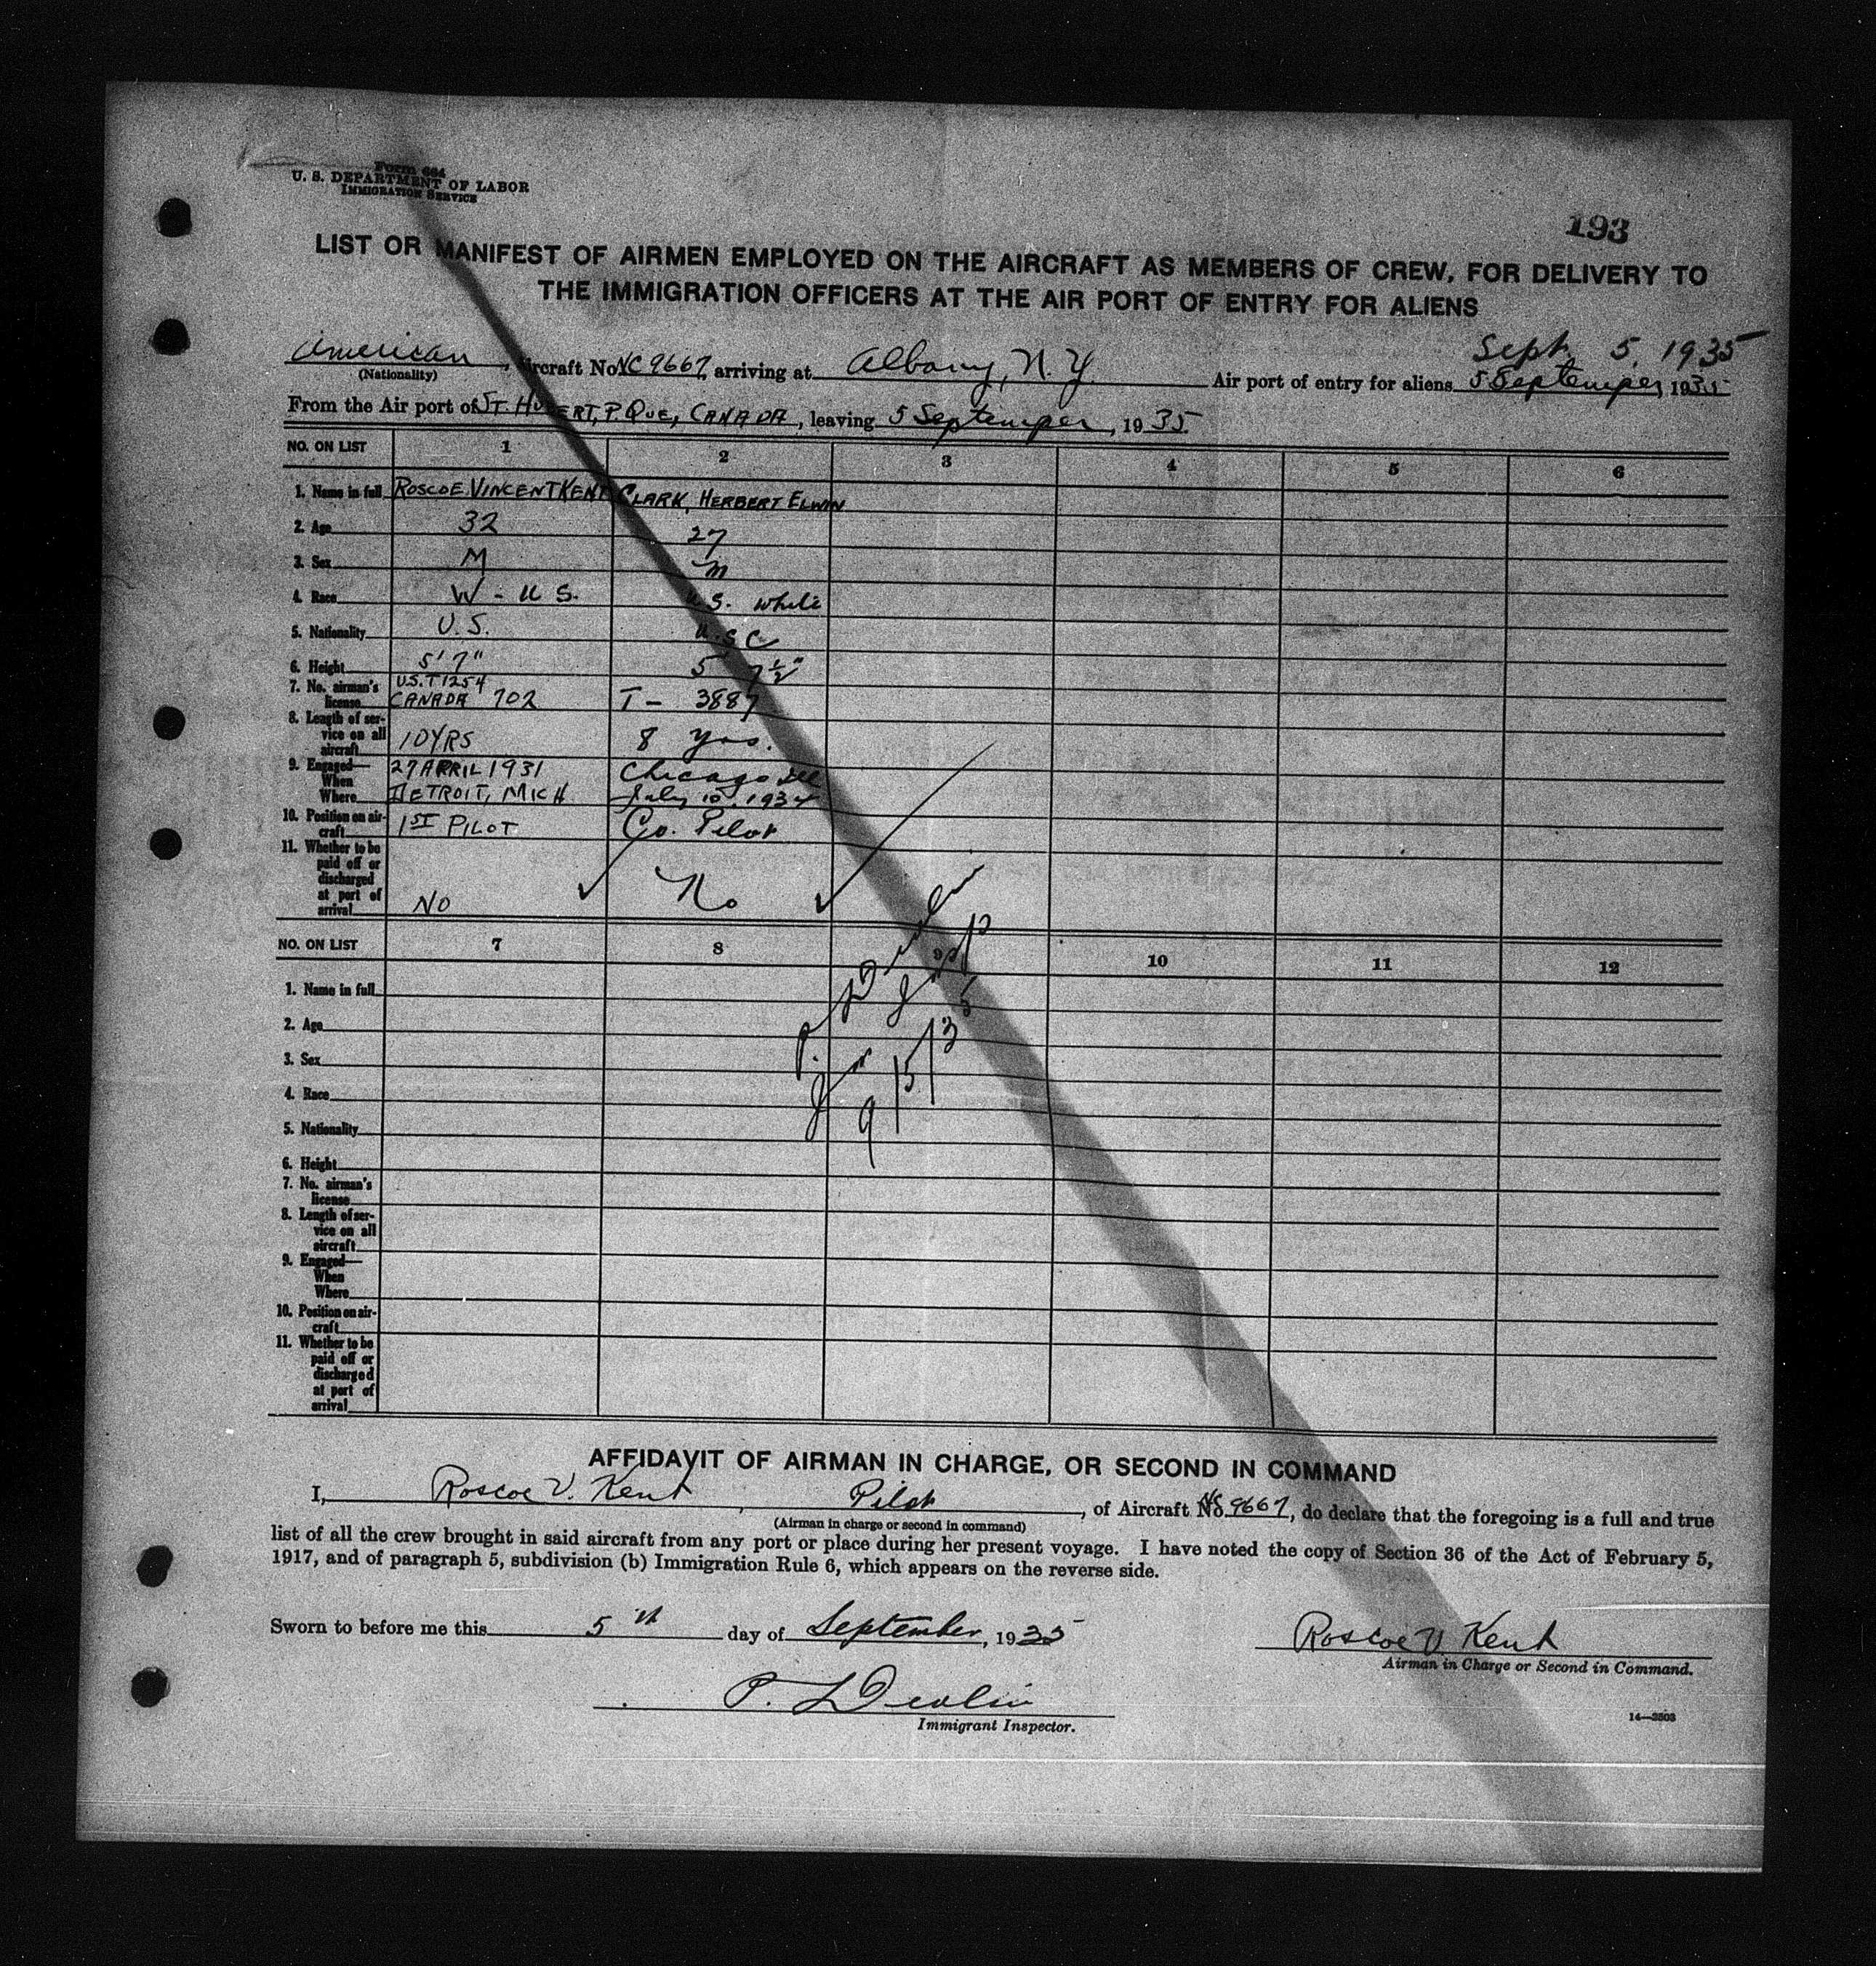 Form 664
U. S. DEPARTMENT OF LABOR
IMMIGRATION SERVICE
193
LIST OR MANIFEST OF AIRMEN EMPLOYED ON THE AIRCRAFT AS MEMBERS OF CREW, FOR DELIVERY TO
THE IMMIGRATION OFFICERS AT THE AIR PORT OF ENTRY FOR ALIENS
Sept. 5, 1935
American, Aircraft No. NC 9667, arriving at Albany, N. Y. Air port of entry for aliens 5 September, 1935
(Nationality)
From the Air port of ST. HUBERT, P. QUE, CANADA, leaving 5 September, 1935
NO. ON LIST 1 2 3 4 5 6
1. Name in full ROSCOE VINCENT KENT CLARK, HERBERT ELWIN
2. Age 32 27
3. Sex M M
4. Race W - U S. U.S. white
5. Nationality U.S. U.S.C
6. Height 5' 7" 5' 7 1/2"
7. No. airman's license U.S. T 1254 CANADA 702 T - 3887
8. Length of service on all aircraft 10 YRS 8 yrs.
9. Engaged— When Where 27 APRIL 1931 DETROIT, MICH Chicago Ill July 10, 1934
10. Position on aircraft 1ST PILOT Co. Pilot
11. Whether to be paid off or discharged at port of arrival NO No
NO. ON LIST 7 8 9 10 11 12
1. Name in full
2. Age
3. Sex
4. Race
5. Nationality
6. Height
7. No. airman's license
8. Length of service on all aircraft
9. Engaged— When Where
10. Position on aircraft
11. Whether to be paid off or discharged at port of arrival
P. L Devlin
9/5/35
AFFIDAVIT OF AIRMAN IN CHARGE, OR SECOND IN COMMAND
I, Roscoe V. Kent, Pilot, of Aircraft No. NC 9667, do declare that the foregoing is a full and true
(Airman in charge or second in command)
list of all the crew brought in said aircraft from any port or place during her present voyage. I have noted the copy of Section 36 of the Act of February 5,
1917, and of paragraph 5, subdivision (b) Immigration Rule 6, which appears on the reverse side.
Sworn to before me this 5th day of September, 1935
Roscoe V. Kent
Airman in Charge or Second in Command.
P. L Devlin
Immigrant Inspector.
14—3503